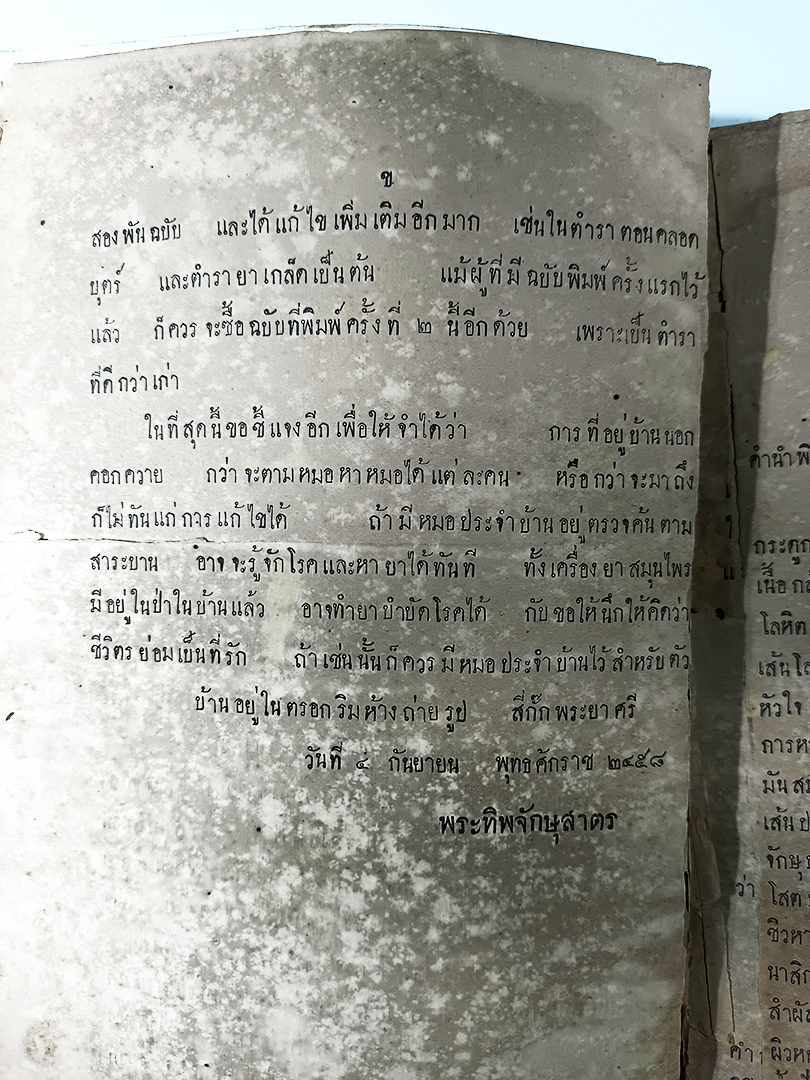 ข
สองพันฉบับ และได้แก้ไขเพิ่มเติมอีกมาก เช่นในตำราตอนคลอด
บุตร์ และตำรายาเกล็ดเป็นต้น แม้ผู้ที่มีฉบับพิมพ์ครั้งแรกไว้
แล้ว ก็ควรจะซื้อฉบับที่พิมพ์ครั้งที่ ๒ นี้อีกด้วย เพราะเป็นตำรา
ที่ดีกว่าเก่า
ในที่สุดนี้ขอชี้แจงอีกเพื่อให้จำได้ว่า การที่อยู่บ้านนอก
คอกควาย กว่าจะตามหมอหาหมอได้แต่ละคน หรือกว่าจะมาถึง
ก็ไม่ทันแก่การแก้ไขได้ ถ้ามีหมอประจำบ้านอยู่ตรวจค้นตาม
สาระบาน อาจจะรู้จักโรคและหายาได้ทันที ทั้งเครื่องยาสมุนไพร
มีอยู่ในป่าในบ้านแล้ว อาจทำยาบำบัดโรคได้ กับขอให้นึกให้คิดว่า
ชีวิตรย่อมเป็นที่รัก ถ้าเช่นนั้นก็ควรมีหมอประจำบ้านไว้สำหรับตัว
บ้านอยู่ในตรอกริมห้างถ่ายรูป สี่กั๊กพระยาศรี
วันที่ ๔ กันยายน พุทธศักราช ๒๔๕๘
พระทิพจักษุสาตร
คำนำ
กระดูก
เนื้อ
โลหิต
เส้น
หัวใจ
การ
มัน
เส้น
จักษุ
ว่า โสต
ชิวหา
นาสิก
สำผัส
คำ ผิวหน